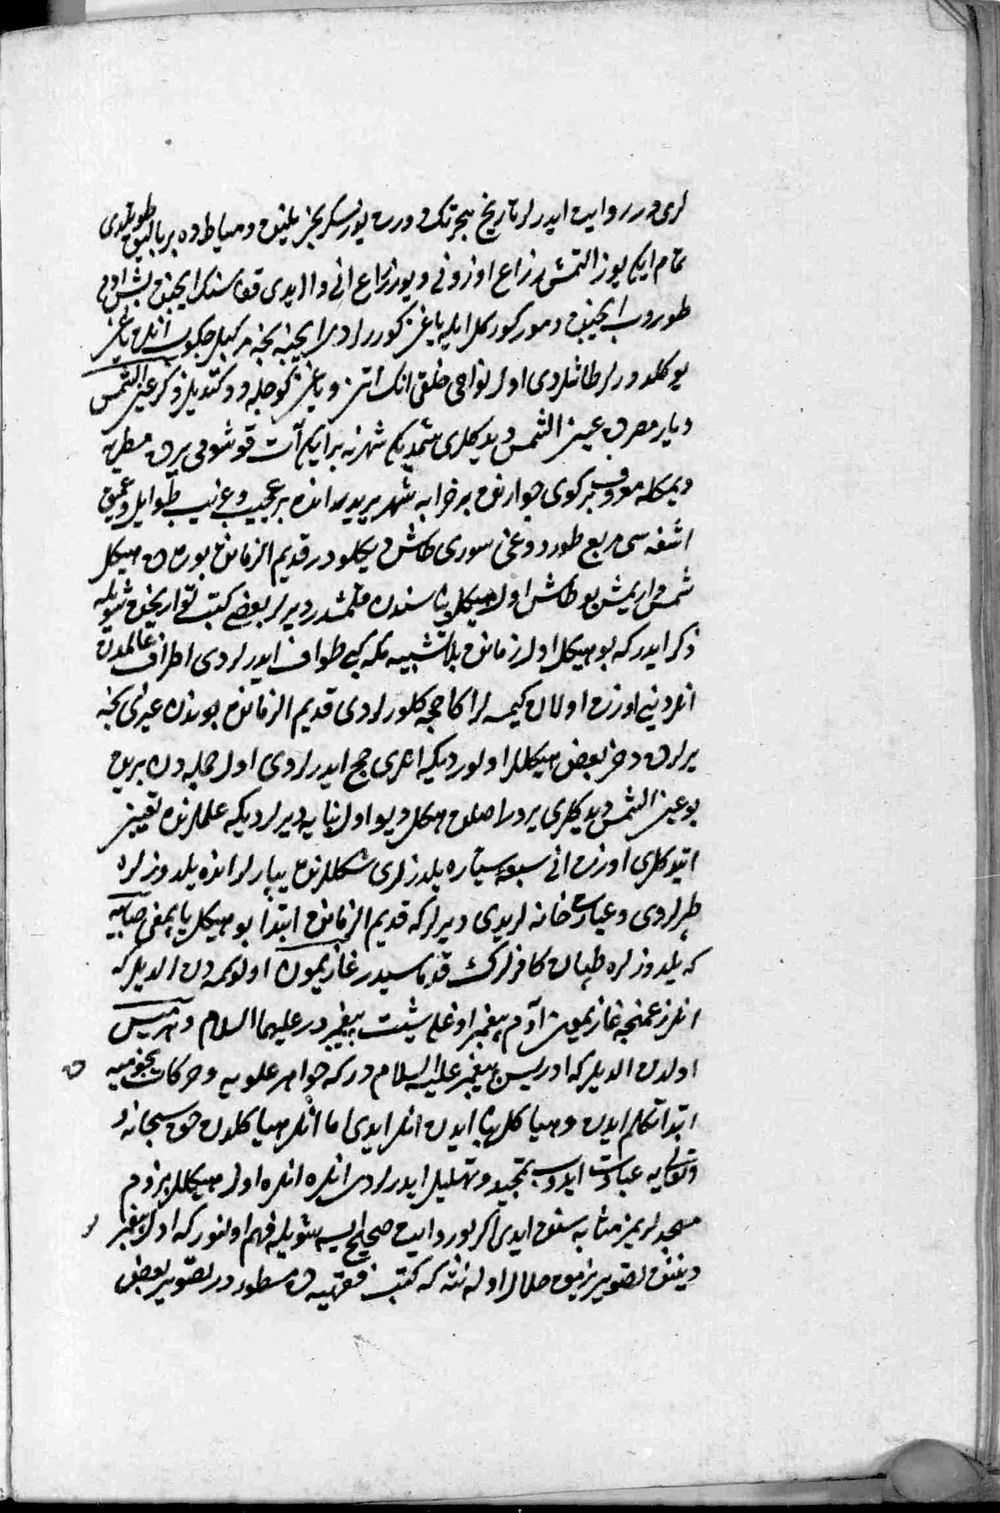 لری در روایت ایدرلر تاریخ هجرتک درت یوز سکز یلنده دمیاطده بر بالیق طوتلدی
تمام ایکی یوز التمش ذراع اوزونی و یوز ذراع انی وار ایدی قفاسنک ایچنده بش اون
طوروب ایچنده دمور کورکلر ایله یاغن کوررلردی ایچنه نیجه مرکبلر چکوب اندن یاغن
یوکلدورلر طاشرلردی اول نواحی خلقی انک اتن و یاغن کوجله دوکتدیلر ذکر عین الشمس
دیار مصرده عین الشمس دیدکلری شمدیکی شهرنه بر ایکی آت قوشومی یرده مطریه
دیمکله معروف بر کوی جوارنده بر خرابه شهر یریدر انده بر عجیب و غریب طوایل و عمیق
اشغه سی مربع طوردوغی سوری طاش دیکلودر قدیم الزمانده بو یرده هیکل
شمس وارمش بو طاش اول هیکل بناسندن قلمشدر دیرلر بعض کتب تواریخده شویله
ذکر ایدر که بو هیکل اول زمانده بلا تشبیه مکه کبی طواف ایدرلردی اطراف عالمدن
انلر دینی اوزره اولان کیمسه لر اکا حجه کلورلردی قدیم الزمانده بوندن غیری نیجه
یرلرده دخی بعض هیکللر اولوردیکه انلری حج ایدرلردی اول جمله دن بریده
بو عین الشمس دیدکلری یردر اصلنده هیکل دیو اول بنایه دیرلردیکه علملرنده تعیین
اتدوکلری اوزره انی سبعه سیاره یلدزلری شکللرنده یپارلر انده یلدوزلره
طپرلردی و عبادت خانه لریدی دیرلر که قدیم الزمانده ابتدا بو هیکل یاپمغی صابیه
که یلدوزلره طپان کافرلرک قدماسیدر غازیمون اولومه دن الدیلر که
انلر زعمنجه غازیمون آدم پیغمبر اوغلی شیث پیغمبر در علیهما السلام و هرمس
اولدن الدیلر که ادریس پیغمبر علیه السلام در که جواهر علویه و حرکات نجومیه ده
ابتدا تکلم ایدن و هیاکل بنا ایدن انلر ایدی اما انلر هیاکلده حق سبحانه و
و تعالی یه عبادت ایدوب تمجید و تهلیل ایدرلردی انده انلره اول هیکللر بزوم
مسجدلریمز مثابه سنده ایدی اکر بو روایت صحیح ایسه شویله فهم اولنور که اول پیغمبر لر
دیننده تصویر یزمق حلال اوله نته که کتب فقهیه ده مسطوردر تصویر بعض